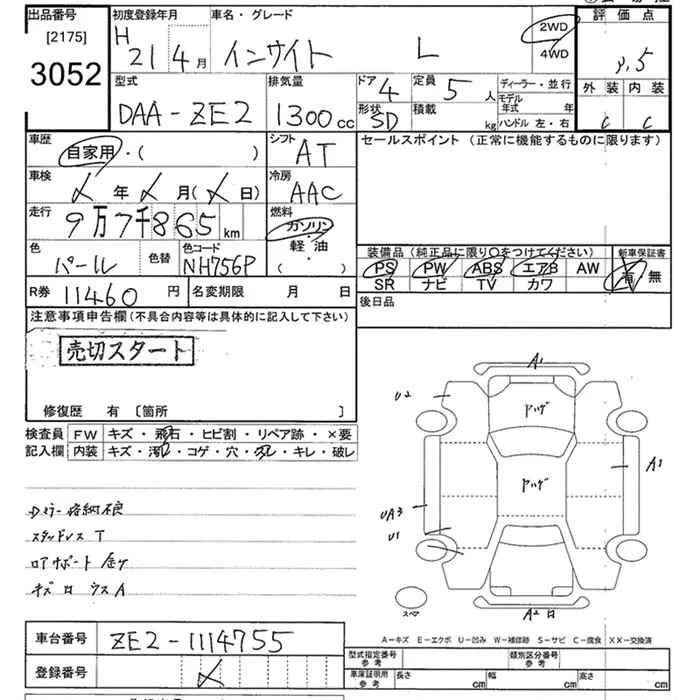 出品番号 初度登録年月 車名・グレード 評価点
[2175] H 2WD
3052 21 4月 インサイト L 4WD
型式 排気量 ドア 定員 ディーラー・並行 外装 内装
4 5人 モデル年式 年
DAA-ZE2 1300cc 形状 積載 C C
SD kg ハンドル 左・右
車歴 シフト セールスポイント (正常に機能するものに限ります)
自家用・( ) AT
車検 冷房
年 月( 日) AAC
走行 燃料
9万7千865km ガソリン
色 色替 色コード 軽油 装備品 (純正品に限り○をつけてください) 新車保証書
パール NH756P ( ) PS PW ABS エアB AW 有 無
SR ナビ TV カワ
R券 11460円 名変期限 月 日 後日品
注意事項申告欄(不具合内容等は具体的に記入して下さい)
売切スタート
修復歴 有 〔箇所 〕
検査員 FW キズ・飛石・ヒビ割・リペア跡・×要
記入欄 内装 キズ・コゲ・穴・キレ・破レ
A1
U2
アハゲ
A1
アハゲ
UA3
U1
Dミラー格納不良
スタッドレス T
ロアサポート
スペア
A2
A-キズ E-エクボ U-凹み W-補修跡 S-サビ C-腐食 XX-交換済
車台番号 ZE2-1114755
型式指定番号 参考 類別区分番号 参考
登録番号
車庫証明用 参考 長さ cm 幅 cm 高さ cm